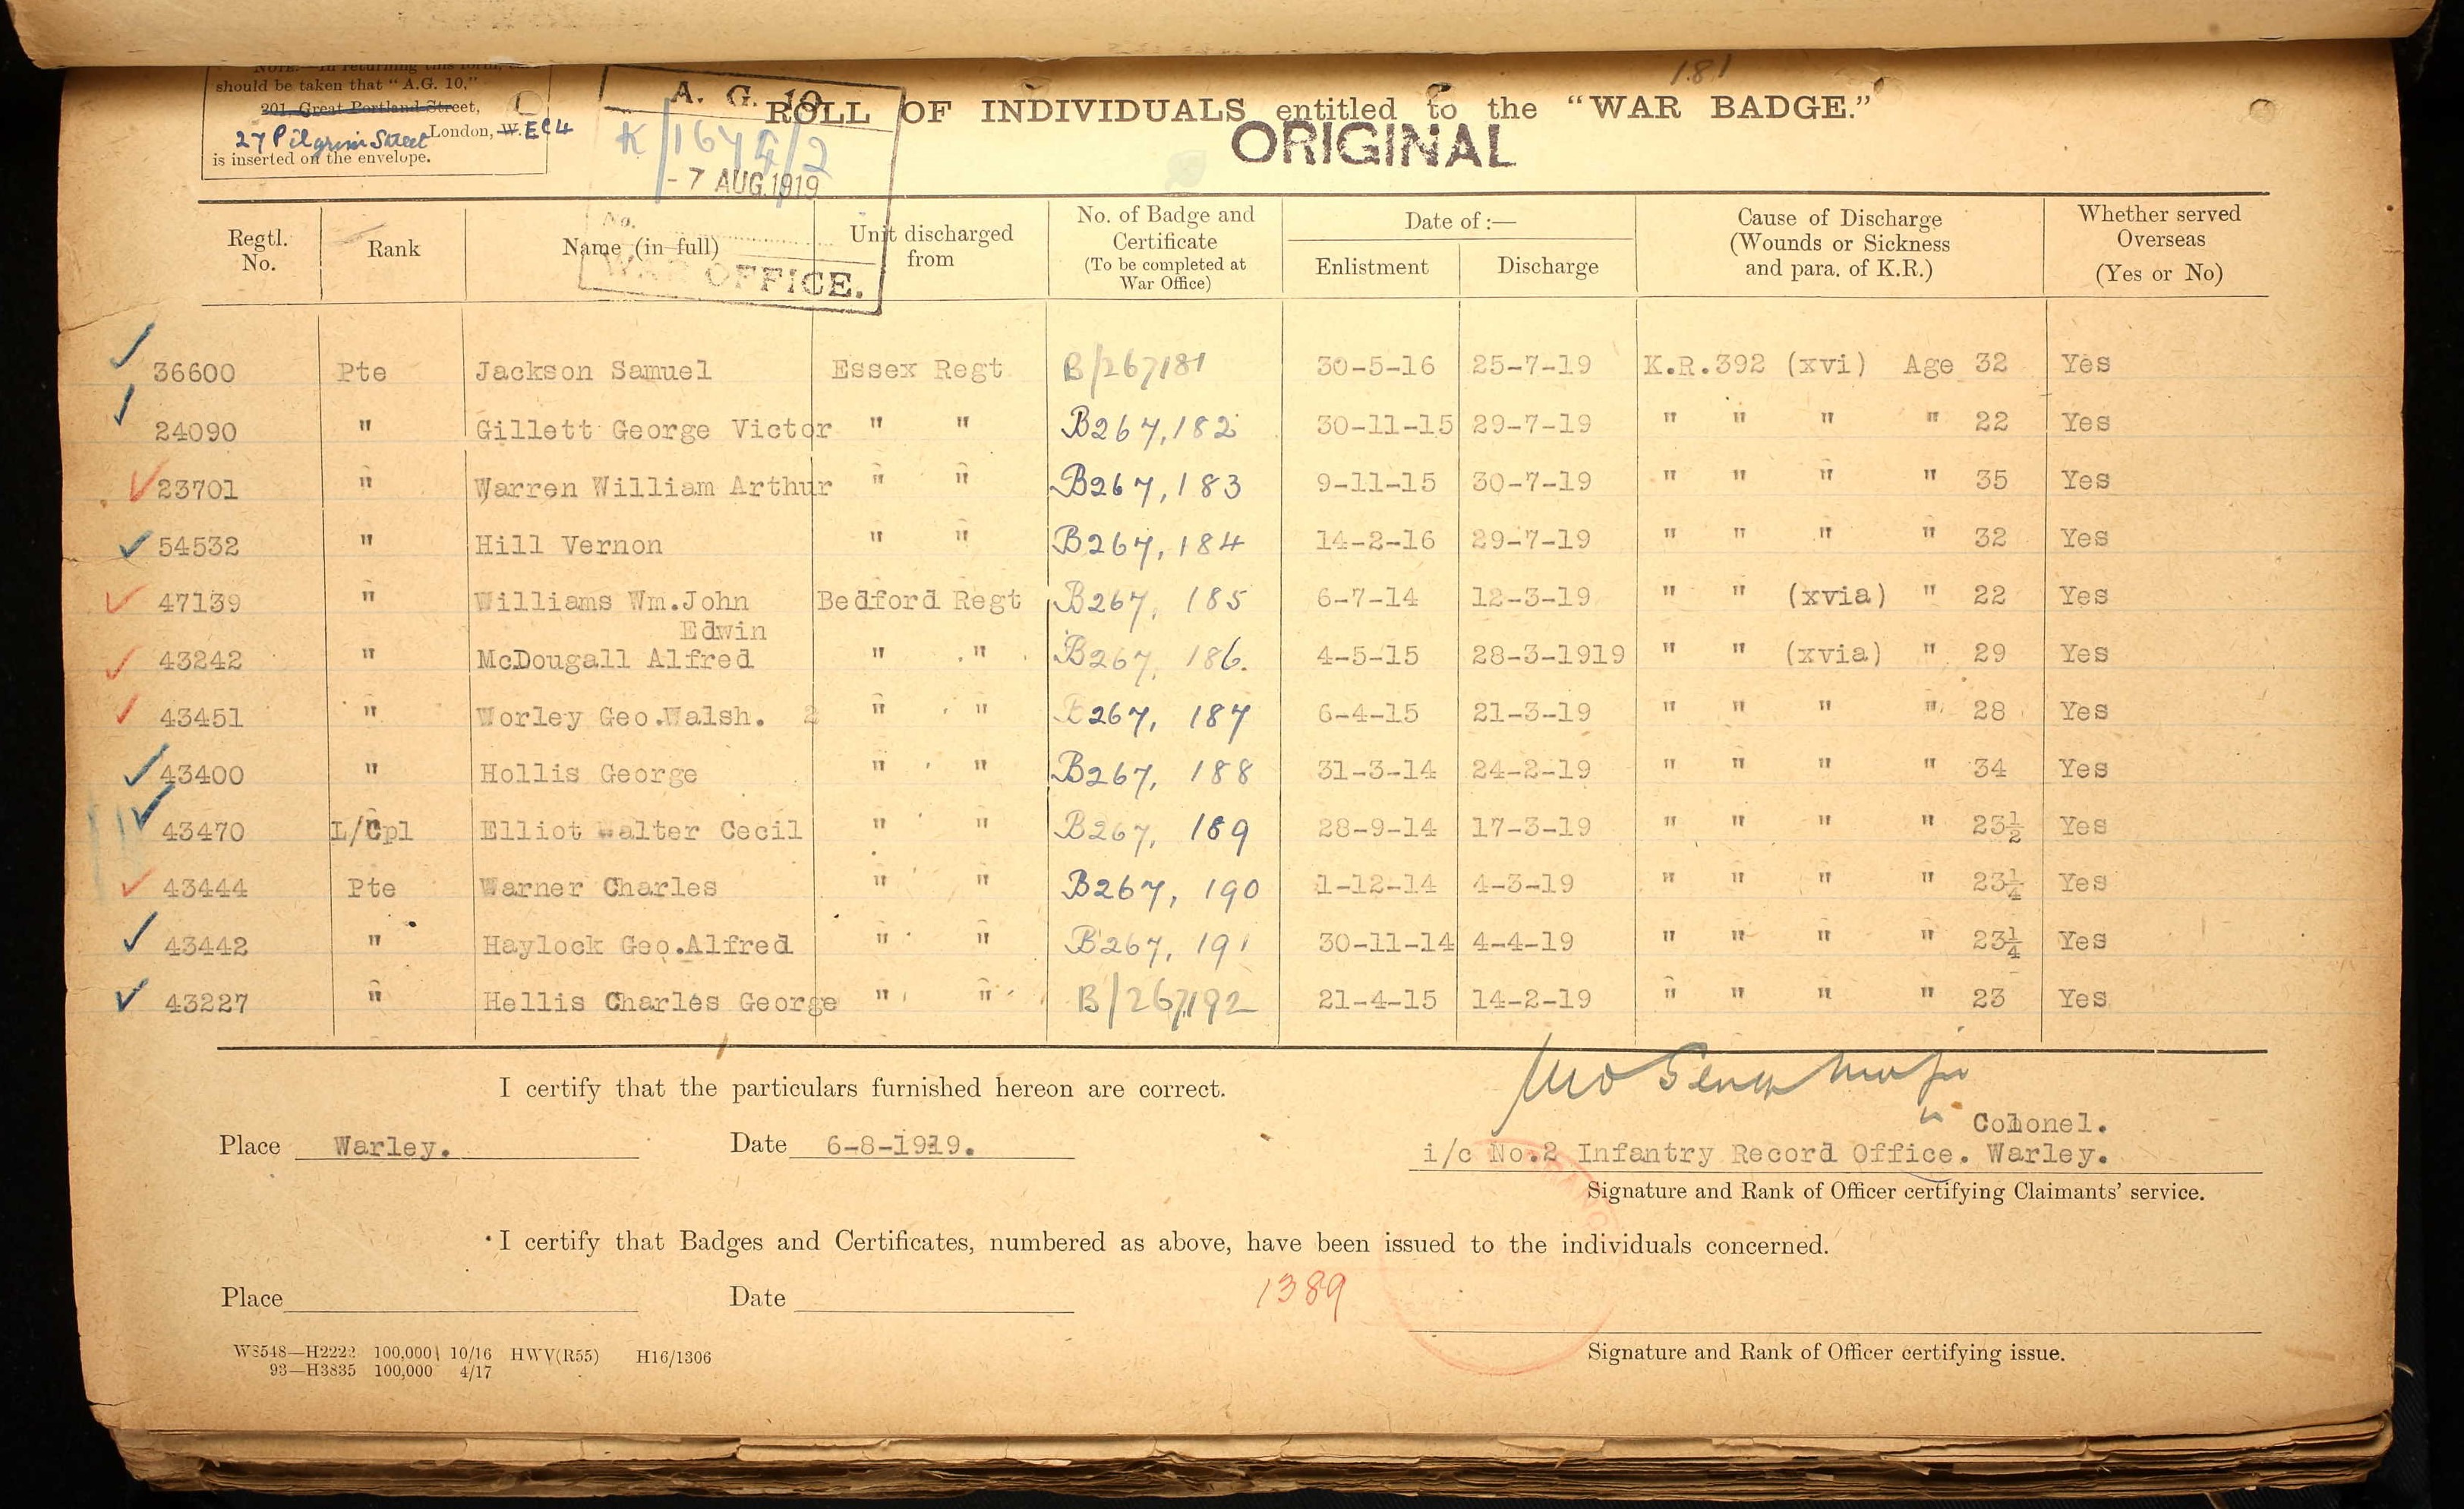 181
NOTE.—In returning this form,
should be taken that "A.G. 10,"
201, Great Portland Street,
27 Pilgrim Street London, W. EC4
is inserted on the envelope.
A. G. 10
K/1674/2
- 7 AUG.1919
No.
WAR OFFICE.
ROLL OF INDIVIDUALS entitled to the "WAR BADGE."
ORIGINAL
Regtl. No. Rank Name (in full) Unit discharged from No. of Badge and Certificate (To be completed at War Office) Date of:— Enlistment Discharge Cause of Discharge (Wounds or Sickness and para. of K.R.) Whether served Overseas (Yes or No)
36600 Pte Jackson Samuel Essex Regt B/267181 30-5-16 25-7-19 K.R.392 (xvi) Age 32 Yes
24090 " Gillett George Victor " " B267,182 30-11-15 29-7-19 " " " " 22 Yes
23701 " Warren William Arthur " " B267,183 9-11-15 30-7-19 " " " " 35 Yes
54532 " Hill Vernon " " B267,184 14-2-16 29-7-19 " " " " 32 Yes
47139 " Williams Wm.John Bedford Regt B267, 185 6-7-14 12-3-19 " " (xvia) " 22 Yes
Edwin
43242 " McDougall Alfred " " B267, 186. 4-5-15 28-3-1919 " " (xvia) " 29 Yes
43451 " Worley Geo.Walsh. 2 " " B267, 187 6-4-15 21-3-19 " " " " 28 Yes
43400 " Hollis George " " B267, 188 31-3-14 24-2-19 " " " " 34 Yes
43470 L/Cpl Elliot Walter Cecil " " B267, 189 28-9-14 17-3-19 " " " " 23½ Yes
43444 Pte Warner Charles " " B267, 190 1-12-14 4-3-19 " " " " 23¼ Yes
43442 " Haylock Geo.Alfred " " B267, 191 30-11-14 4-4-19 " " " " 23¼ Yes
43227 " Hellis Charles George " " B/267,192 21-4-15 14-2-19 " " " " 23 Yes
I certify that the particulars furnished hereon are correct.
Colonel.
Place Warley. Date 6-8-1919. i/c No.2 Infantry Record Office. Warley.
Signature and Rank of Officer certifying Claimants' service.
I certify that Badges and Certificates, numbered as above, have been issued to the individuals concerned.
1389
Place Date
Signature and Rank of Officer certifying issue.
W8548—H2222 100,000 10/16 HWV(R55) H16/1306
93—H3835 100,000 4/17